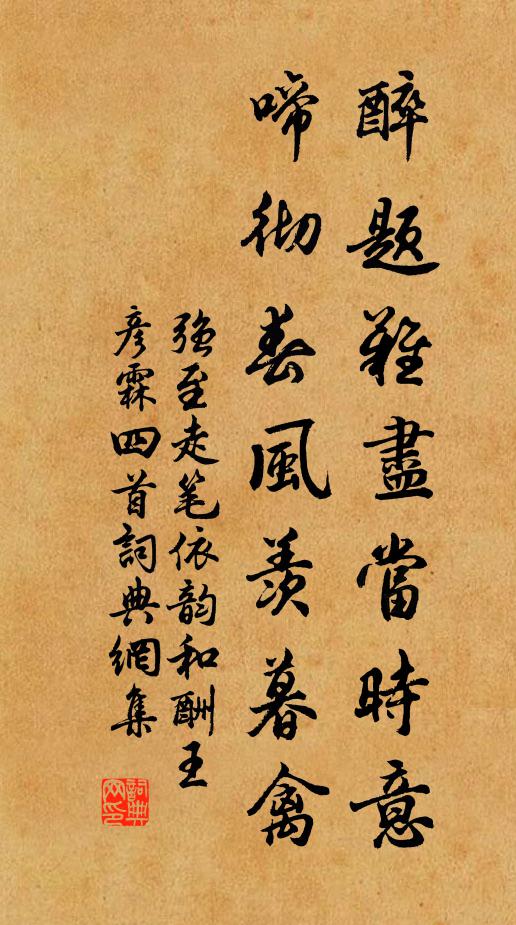 醉題難盡當時意
啼彻春風羨暮禽
強至走笔依韵和酬王
彦霖四首詞典網集
詞典网印